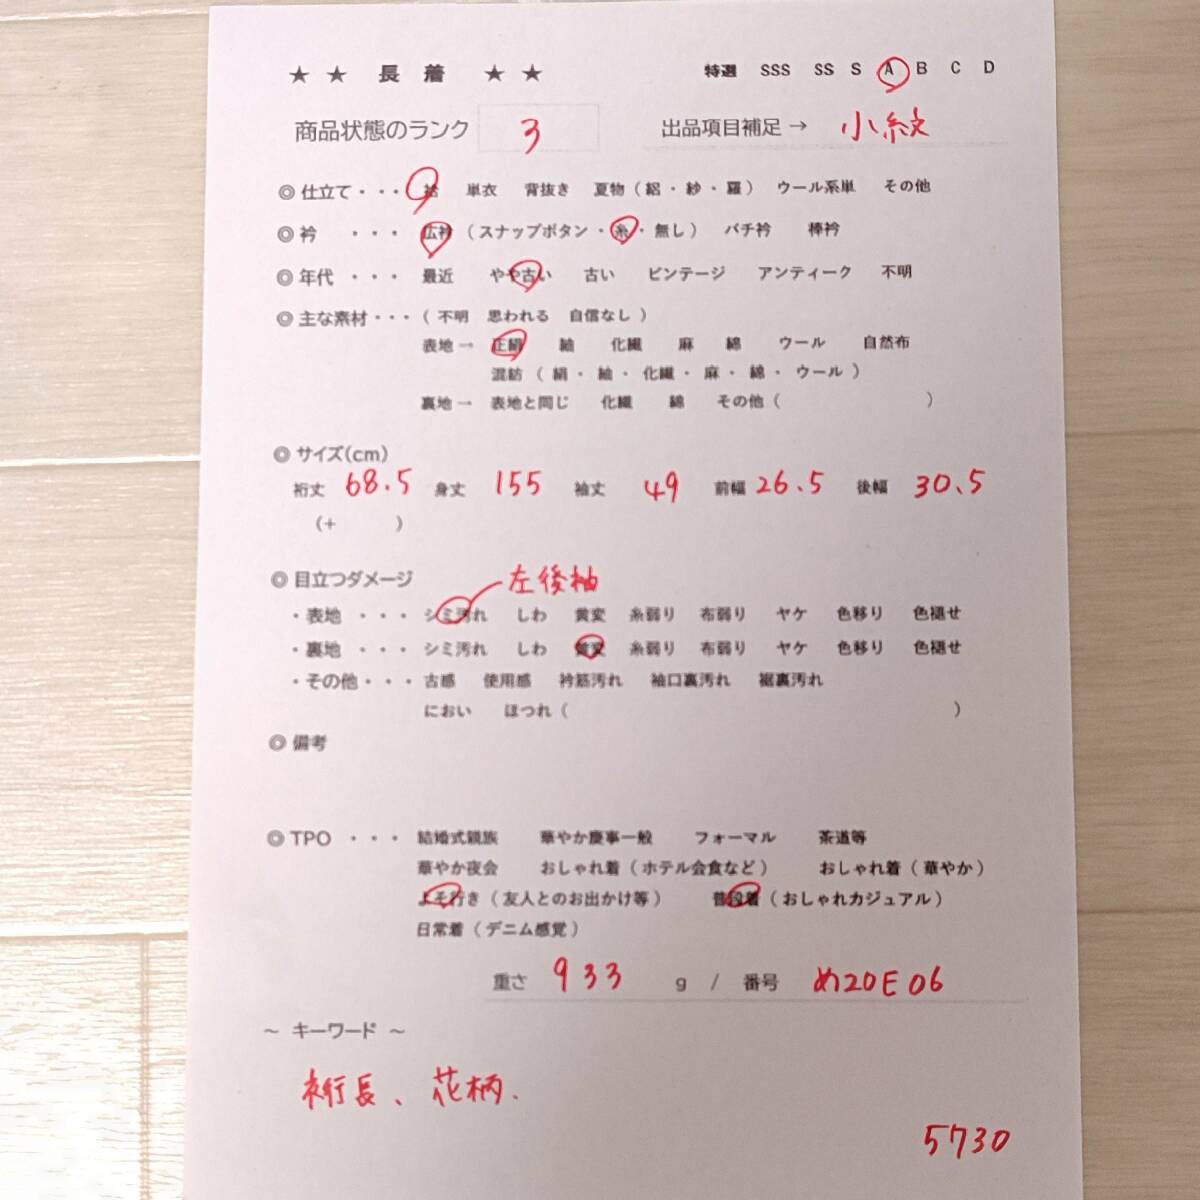 ★ ★ 長 着 ★ ★ 特選 SSS SS S A B C D
商品状態のランク 3 出品項目補足 → 小紋
◎ 仕立て・・・ 袷 単衣 背抜き 夏物（絽・紗・羅） ウール系単 その他
◎ 衿 ・・・ 広衿（スナップボタン・糸・無し） バチ衿 棒衿
◎ 年代 ・・・ 最近 やや古い 古い ビンテージ アンティーク 不明
◎ 主な素材・・・（ 不明 思われる 自信なし ）
表地 → 正絹 紬 化繊 麻 綿 ウール 自然布
混紡（ 絹・ 紬・ 化繊・ 麻・ 綿・ ウール ）
裏地 → 表地と同じ 化繊 綿 その他（ ）
◎ サイズ(cm)
裄丈 68.5 身丈 155 袖丈 49 前幅 26.5 後幅 30.5
（+ ）
◎ 目立つダメージ 左後袖
・表地 ・・・ シミ汚れ しわ 黄変 糸弱り 布弱り ヤケ 色移り 色褪せ
・裏地 ・・・ シミ汚れ しわ 黄変 糸弱り 布弱り ヤケ 色移り 色褪せ
・その他・・・ 古感 使用感 衿筋汚れ 袖口裏汚れ 裾裏汚れ
におい ほつれ（ ）
◎ 備考
◎ TPO ・・・ 結婚式親族 華やか慶事一般 フォーマル 茶道等
華やか夜会 おしゃれ着（ホテル会食など） おしゃれ着（華やか）
よそ行き（友人とのお出かけ等） 普段着（おしゃれカジュアル）
日常着（デニム感覚）
重さ 933 g / 番号 め20E06
～ キーワード ～
裄長、花柄.
5730